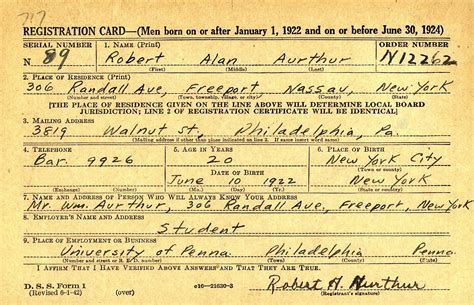 717
REGISTRATION CARD—(Men born on or after January 1, 1922 and on or before June 30, 1924)
SERIAL NUMBER 1. NAME (Print) ORDER NUMBER
N 89 Robert Alan Aurthur N12262
(First) (Middle) (Last)
2. PLACE OF RESIDENCE (Print)
306 Randall Ave, Freeport Nassau, New York
(Number and street) (Town, township, village, or city) (County) (State)
[THE PLACE OF RESIDENCE GIVEN ON THE LINE ABOVE WILL DETERMINE LOCAL BOARD
JURISDICTION; LINE 2 OF REGISTRATION CERTIFICATE WILL BE IDENTICAL]
3. MAILING ADDRESS
3819 Walnut St, Philadelphia, Pa.
[Mailing address if other than place indicated on line 2. If same insert word same]
4. TELEPHONE 5. AGE IN YEARS 6. PLACE OF BIRTH
Bar. 9926 20 New York City
DATE OF BIRTH (Town or county)
June 10 1922 New York
(Exchange) (Number) (Mo.) (Day) (Yr.) (State or country)
7. NAME AND ADDRESS OF PERSON WHO WILL ALWAYS KNOW YOUR ADDRESS
Mr. Wm. Aurthur, 306 Randall Ave, Freeport, New York
8. EMPLOYER'S NAME AND ADDRESS
Student
9. PLACE OF EMPLOYMENT OR BUSINESS
University of Penna. Philadelphia Penna.
(Number and street or R. F. D. number) (Town) (County) (State)
I AFFIRM THAT I HAVE VERIFIED ABOVE ANSWERS AND THAT THEY ARE TRUE.
D. S. S. Form 1 Robert A. Aurthur
(Revised 6-1-42) (over) 16—21630-3 (Registrant's signature)